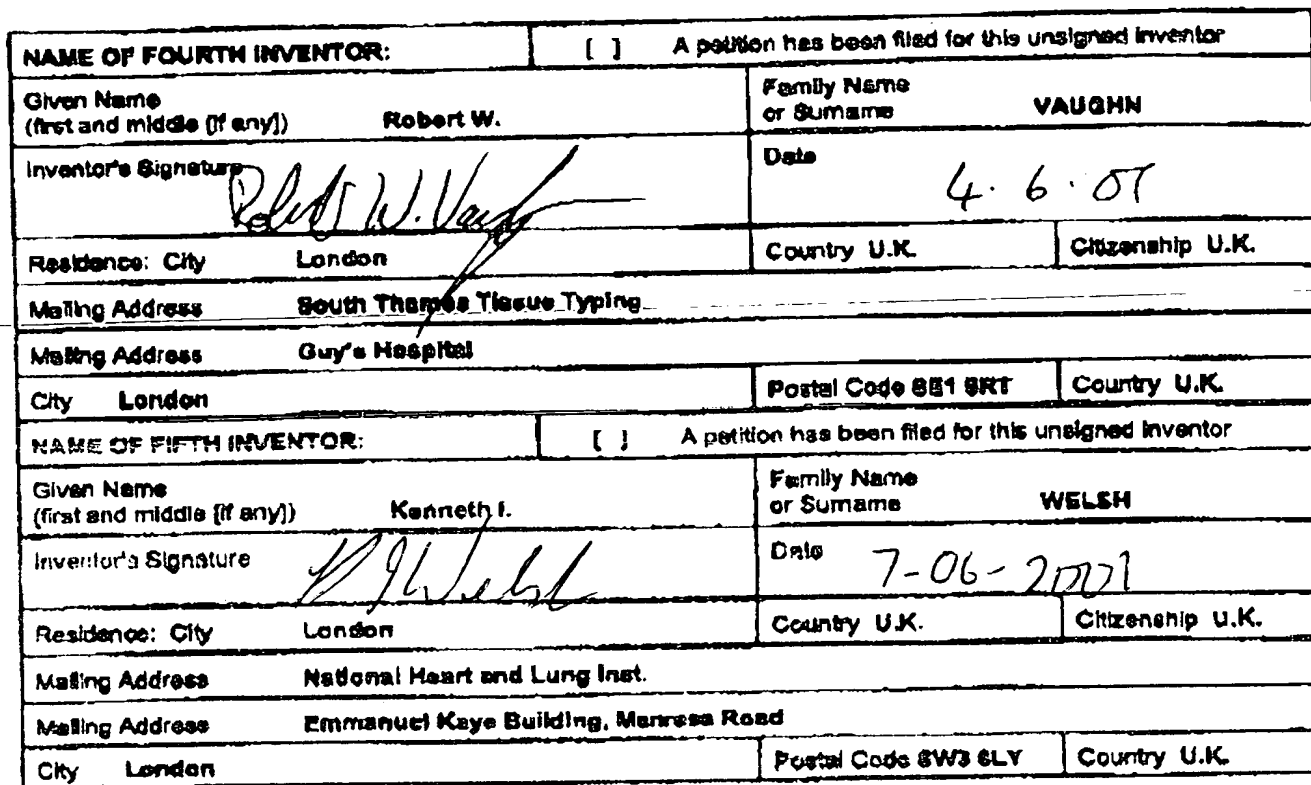 NAME OF FOURTH INVENTOR: [ ] A petition has been filed for this unsigned inventor
Given Name Family Name
(first and middle [if any]) Robert W. or Surname VAUGHN
Inventor's Signature Robert W. Vaughn Date 4. 6. 01
Residence: City London Country U.K. Citizenship U.K.
Mailing Address South Thames Tissue Typing
Mailing Address Guy's Hospital
City London Postal Code SE1 9RT Country U.K.
NAME OF FIFTH INVENTOR: [ ] A petition has been filed for this unsigned inventor
Given Name Family Name
(first and middle [if any]) Kenneth I. or Surname WELSH
Inventor's Signature K I Welsh Date 7-06-2001
Residence: City London Country U.K. Citizenship U.K.
Mailing Address National Heart and Lung Inst.
Mailing Address Emmanuel Kaye Building, Manresa Road
City London Postal Code SW3 6LY Country U.K.